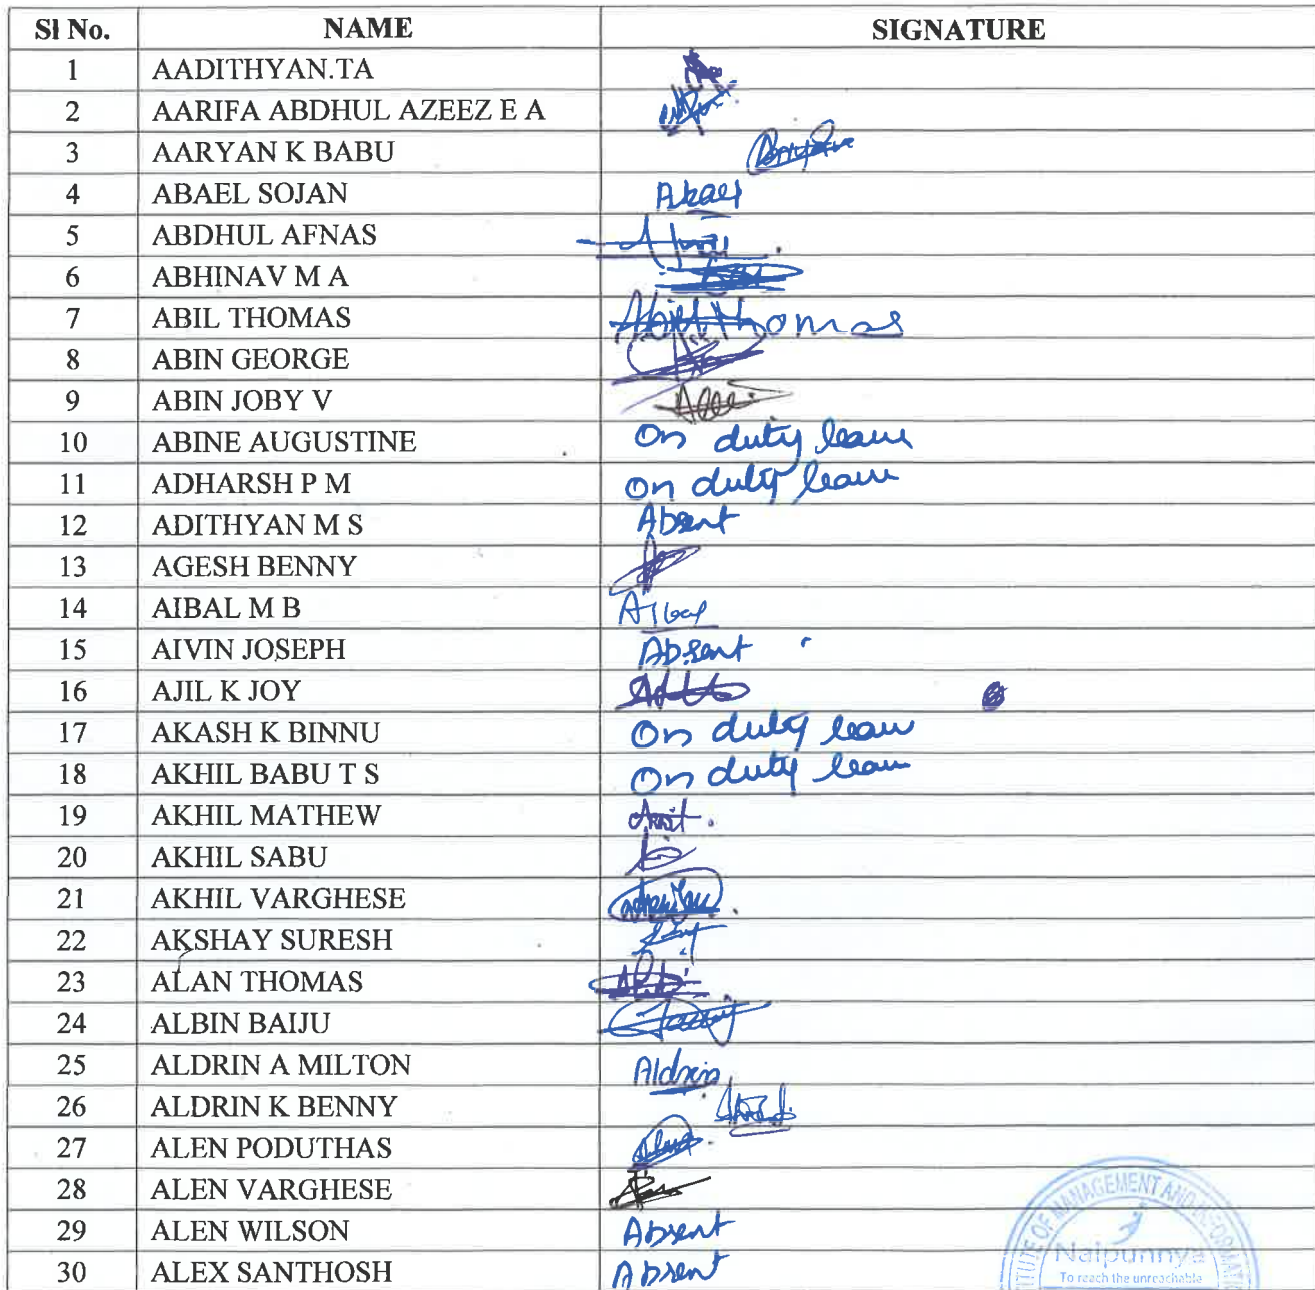 Sl No. NAME SIGNATURE
1 AADITHYAN.TA
2 AARIFA ABDHUL AZEEZ E A
3 AARYAN K BABU
4 ABAEL SOJAN Abael
5 ABDHUL AFNAS
6 ABHINAV M A
7 ABIL THOMAS Abil Thomas
8 ABIN GEORGE
9 ABIN JOBY V
10 ABINE AUGUSTINE On duty leave
11 ADHARSH P M On duty leave
12 ADITHYAN M S Absent
13 AGESH BENNY
14 AIBAL M B Aibal
15 AIVIN JOSEPH Absent
16 AJIL K JOY
17 AKASH K BINNU On duty leave
18 AKHIL BABU T S On duty leave
19 AKHIL MATHEW
20 AKHIL SABU
21 AKHIL VARGHESE
22 AKSHAY SURESH
23 ALAN THOMAS
24 ALBIN BAIJU
25 ALDRIN A MILTON Aldrin
26 ALDRIN K BENNY
27 ALEN PODUTHAS
28 ALEN VARGHESE
29 ALEN WILSON Absent
30 ALEX SANTHOSH Absent
OF MANAGEMENT AND
Naipunnya
To reach the unreachable